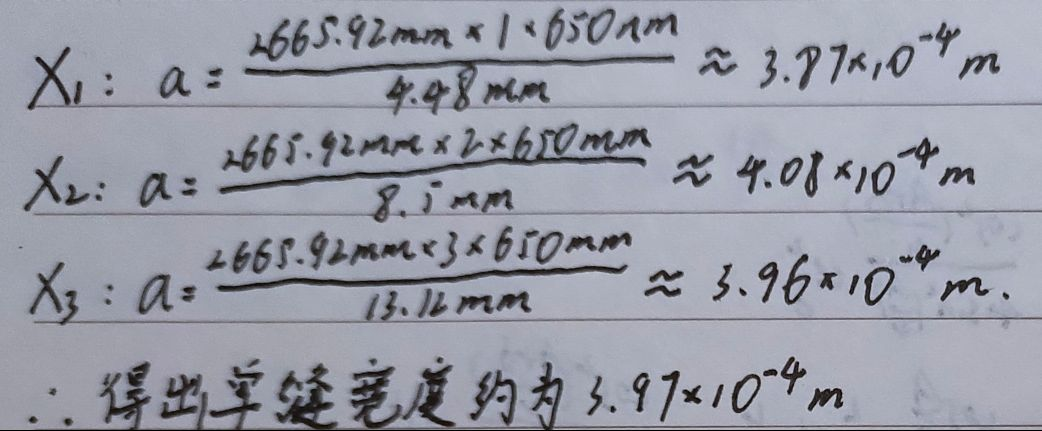 X₁: a = 2665.92mm × 1 × 650nm / 4.48mm ≈ 3.87×10⁻⁴ m
X₂: a = 2665.92mm × 2 × 650mm / 8.5mm ≈ 4.08×10⁻⁴ m
X₃: a = 2665.92mm × 3 × 650mm / 13.12mm ≈ 3.96×10⁻⁴ m.
∴ 得出单缝宽度约为 3.97×10⁻⁴ m